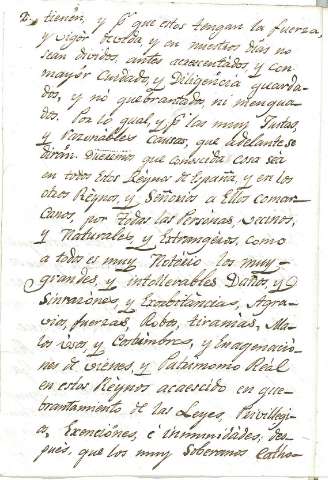 2. tienen, y pª que estos tengan la fuerza,
y vigor devida, y en nuestros dias no
sean dividos, antes acrecentados y con
mayor Cuidado, y Diligencia guarda-
dos, y nó quebrantados, ni mengua-
dos. Por lo qual, y pª las muy Justas,
y Razonables Causas, que adelante se
dirán. Decimos que conocida cosa sea
en todos Estos Reynos de España, y en los
otros Reynos, y Señorios a Ellos comar-
canos, por todas las Personas, vecinos,
y Naturales, y Estrangeros, como
a todos es muy Notorio los muy-
grandes, y intollerables Daños, y
Sinrazónes, y Exorbitancias, Agra-
vios, fuerzas, Robos, tiranias, Ma-
los usos, y Costumbres, y Enagenacio-
nes de vienes, y Patrimonio Reál
en estos Reynos acaescido en que-
brantamiento de las Leyes, Privillegi-
os, Exenciónes, é inmunidades, des-
pués, que los muy Soberanos Catho-